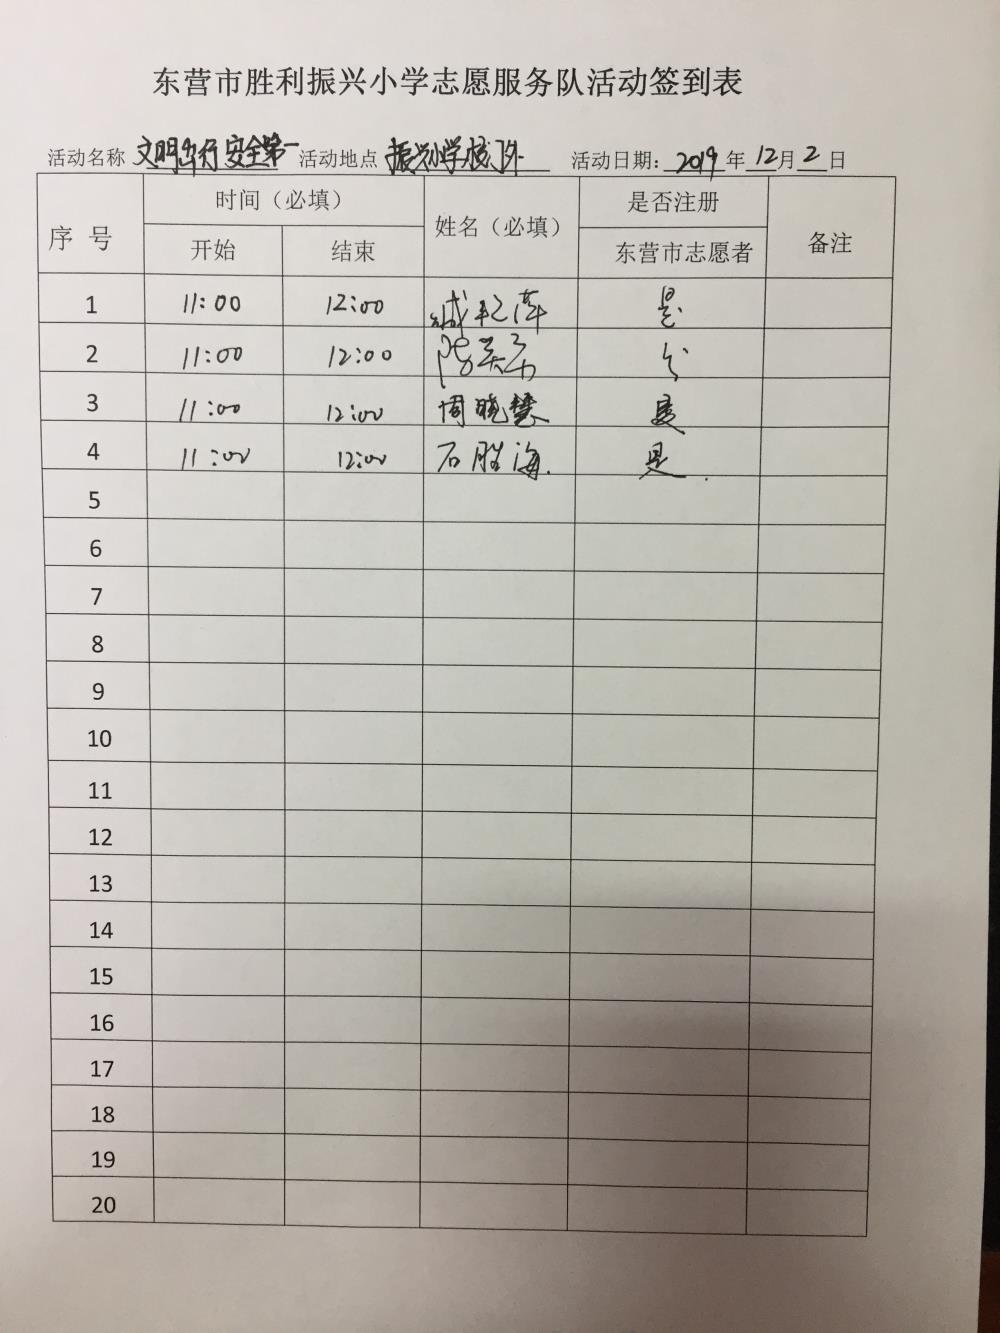 东营市胜利振兴小学志愿服务队活动签到表
活动名称 文明出行安全第一 活动地点 振兴小学校门外 活动日期: 2019 年 12 月 2 日
序 号 时间（必填） 姓名（必填） 是否注册 备注
开始 结束 东营市志愿者
1 11:00 12:00 是
2 11:00 12:00
3 11:00 12:00 周晓慧 是
4 11:00 12:00 石胜海 是
5
6
7
8
9
10
11
12
13
14
15
16
17
18
19
20